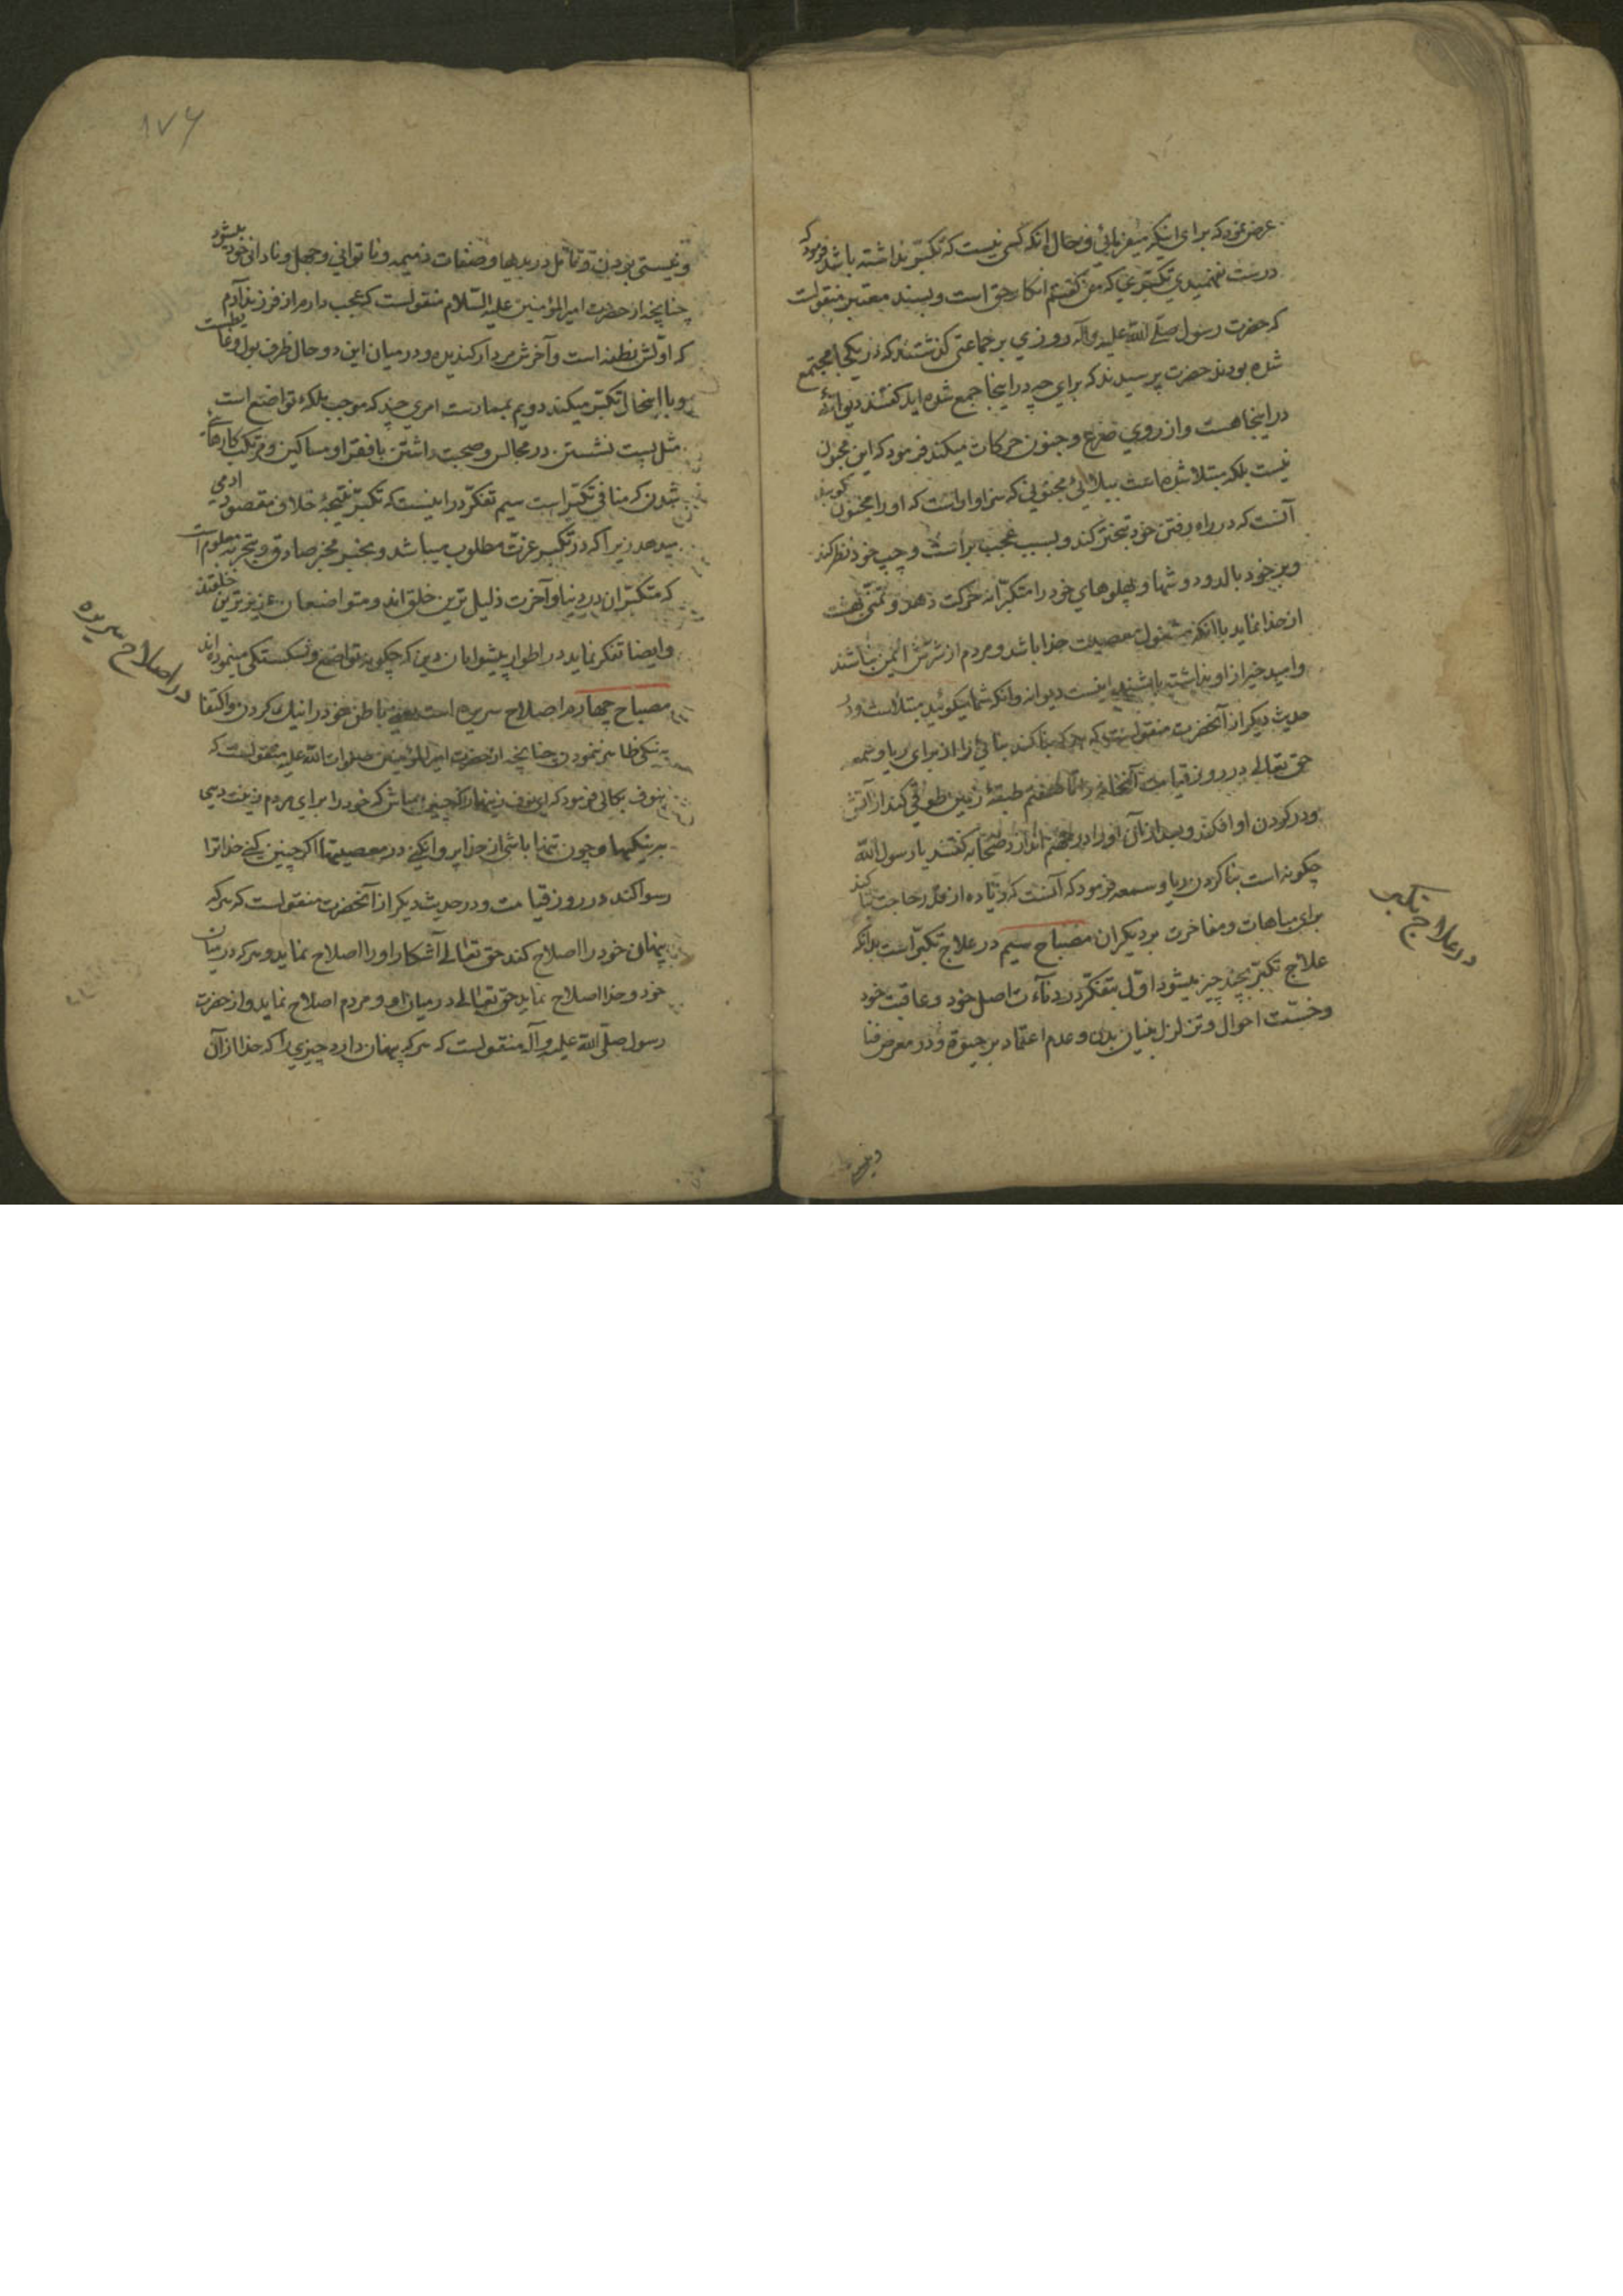 عرض نمود که برای اینکه میفرمائی و حال آنکه کسی نیست که تکبر نداشته باشد فرمود که
درست نفهمیدی تکبری که من گفتم انکار حق است و بسند معتبر منقولست
که حضرت رسول صلی الله علیه و آله روزی بر جماعتی گذشتند که در یکجا مجتمع
شده بودند حضرت پرسیدند که برای چه در اینجا جمع شده‌اید گفتند دیوانهٔ
در اینجا هست و از روی صرع و جنون حرکات میکند فرمود که این مجنون
نیست بلکه مبتلا شده است ببلائی مجنونی که سزاوار است که او را مجنون گویند
آنست که در راه رفتن خود تبختر کند و بسبب عجب براست و چپ خود نظر کند
و بر خود بالد و دوشها و پهلوهای خود را متکبرانه حرکت دهد و تمنی بهشت
از خدا نماید با آنکه مشغول معصیت خدا باشد و مردم از شرش ایمن نباشند
و امید خیر از او نداشته باشند اینست دیوانه و آنکه شما میگوئید مبتلا است و در
حدیث دیگر از آنحضرت منقولست که هرکه بنا کند بنائی را از برای ریا و سمعه
حق تعالی در روز قیامت آنخانه را تا هفتم طبقهٔ زمین طوقی کند از آتش
و در گردن او افکند و بعد از آن او را در جهنم اندازد صحابه گفتند یا رسول الله
چگونه است بنا کردن ریا و سمعه فرمود که آنست که زیاده از قدر حاجت بنا کند
برای مباهات و مفاخرت بر دیگران مصباح سیم در علاج تکبر است بدانکه
علاج تکبر بچند چیز میشود اول بتفکر در دنائت اصل خود و عاقبت خود
و خسّت احوال و تزلزل بنیان بدن و عدم اعتماد بر حیوة و در معرض فنا
در علاج تکبر
و نیستی
۱۷۶
و نیستی بودن و تأمل در بدیها و صفات ذمیمه و ناتوانی و جهل و نادانی خود میشود
چنانچه از حضرت امیرالمؤمنین علیه السلام منقولست که عجب دارم از فرزند آدم
که اولش نطفه است و آخرش مردار گندیده و در میان این دو حال ظرف بول و غایطست
و با اینحال تکبر میکند دویم بممارست امری چند که موجب ملکهٔ تواضع است
مثل پست نشستن در مجالس و صحبت داشتن با فقرا و مساکین و مرتکب کارهائی
شدن که منافی تکبر است سیم تفکر در اینست که تکبر نتیجهٔ خلاف مقصود آدمی
میدهد زیرا که در تکبر عزت مطلوب میباشد و بخبر مخبر صادق و تجربه معلوم است
که متکبران در دنیا و آخرت ذلیل ترین خلق‌اند و متواضعان عزیزترین خلقند
و ایضا تفکر نماید در اطوار پیشوایان دین که چگونه تواضع و شکستگی مینموده‌اند
مصباح چهارم اصلاح سریره است یعنی باطن خود را نیک کردن و اکتفا
به نیکی ظاهر ننمودن چنانچه از حضرت امیرالمؤمنین صلوات الله علیه منقولست که
بنوف بکالی فرمود که ای نوف زنهار که چنین مباش که خود را برای مردم زینت دهی
به نیکیها و چون تنها باشی از خدا پروا نکنی در معصیتها اگر چنین کنی خدا ترا
رسوا کند در روز قیامت و در حدیث دیگر از آنحضرت منقولست که هرکه
پنهان خود را اصلاح کند حق تعالی آشکار او را اصلاح نماید و هرکه در میان
خود و خدا اصلاح نماید حق تعالی در میان او و مردم اصلاح نماید و از حضرت
رسول صلی الله علیه و آله منقولست که هرکه پنهان دارد چیزی را که خدا از آن
در اصلاح سریره